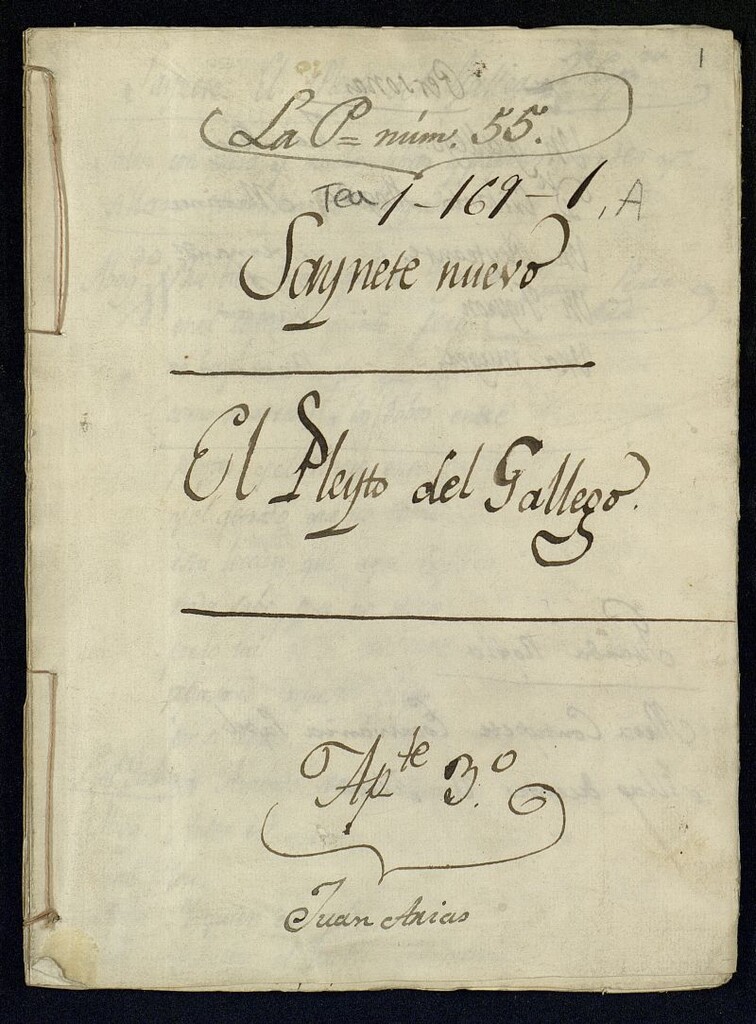 1
La P= núm. 55.
Tea 1-169-1, A
Saynete nuevo
El Pleyto del Gallego.
Ap.te 3.o
Juan Arias